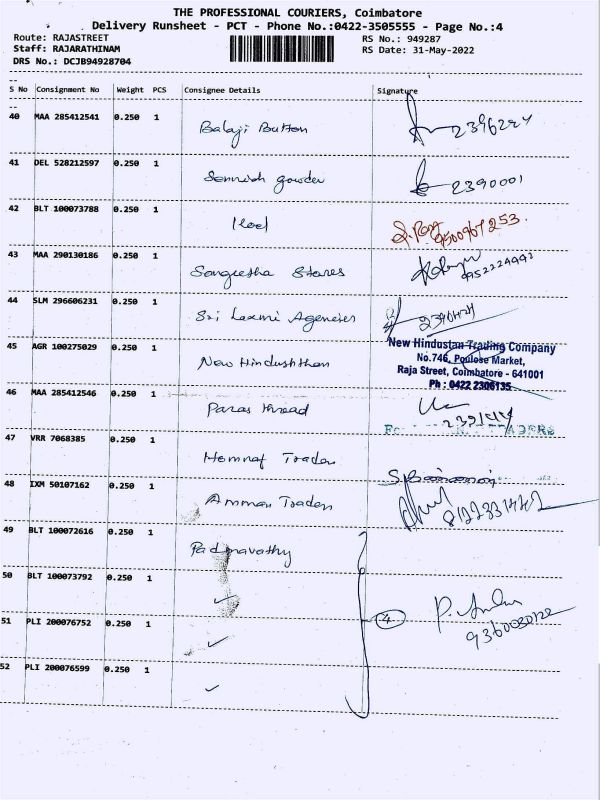 THE PROFESSIONAL COURIERS, Coimbatore
Delivery Runsheet - PCT - Phone No.:0422-3505555 - Page No.:4
Route: RAJASTREET RS No.: 949287
Staff: RAJARATHINAM RS Date: 31-May-2022
DRS No.: DCJB94928704
S No Consignment No Weight PCS Consignee Details Signature
40 MAA 285412541 0.250 1 Balaji Button 2396224
41 DEL 528212597 0.250 1 2390001
42 BLT 100073788 0.250 1 9500967253.
43 MAA 290130186 0.250 1 Sangeetha Stores
44 SLM 296606231 0.250 1 Sri Laxmi Agencies
45 AGR 100275029 0.250 1 New Hindusthan
New Hindustan Trading Company
No.746, Poulose Market,
Raja Street, Coimbatore - 641001
Ph : 0422 2306135
46 MAA 285412546 0.250 1 Paras thread
47 VRR 7068385 0.250 1 Traders
48 IXM 50107162 0.250 1 Amman Traders
49 BLT 100072616 0.250 1 Padmavathy
50 BLT 100073792 0.250 1
51 PLI 200076752 0.250 1 4
52 PLI 200076599 0.250 1